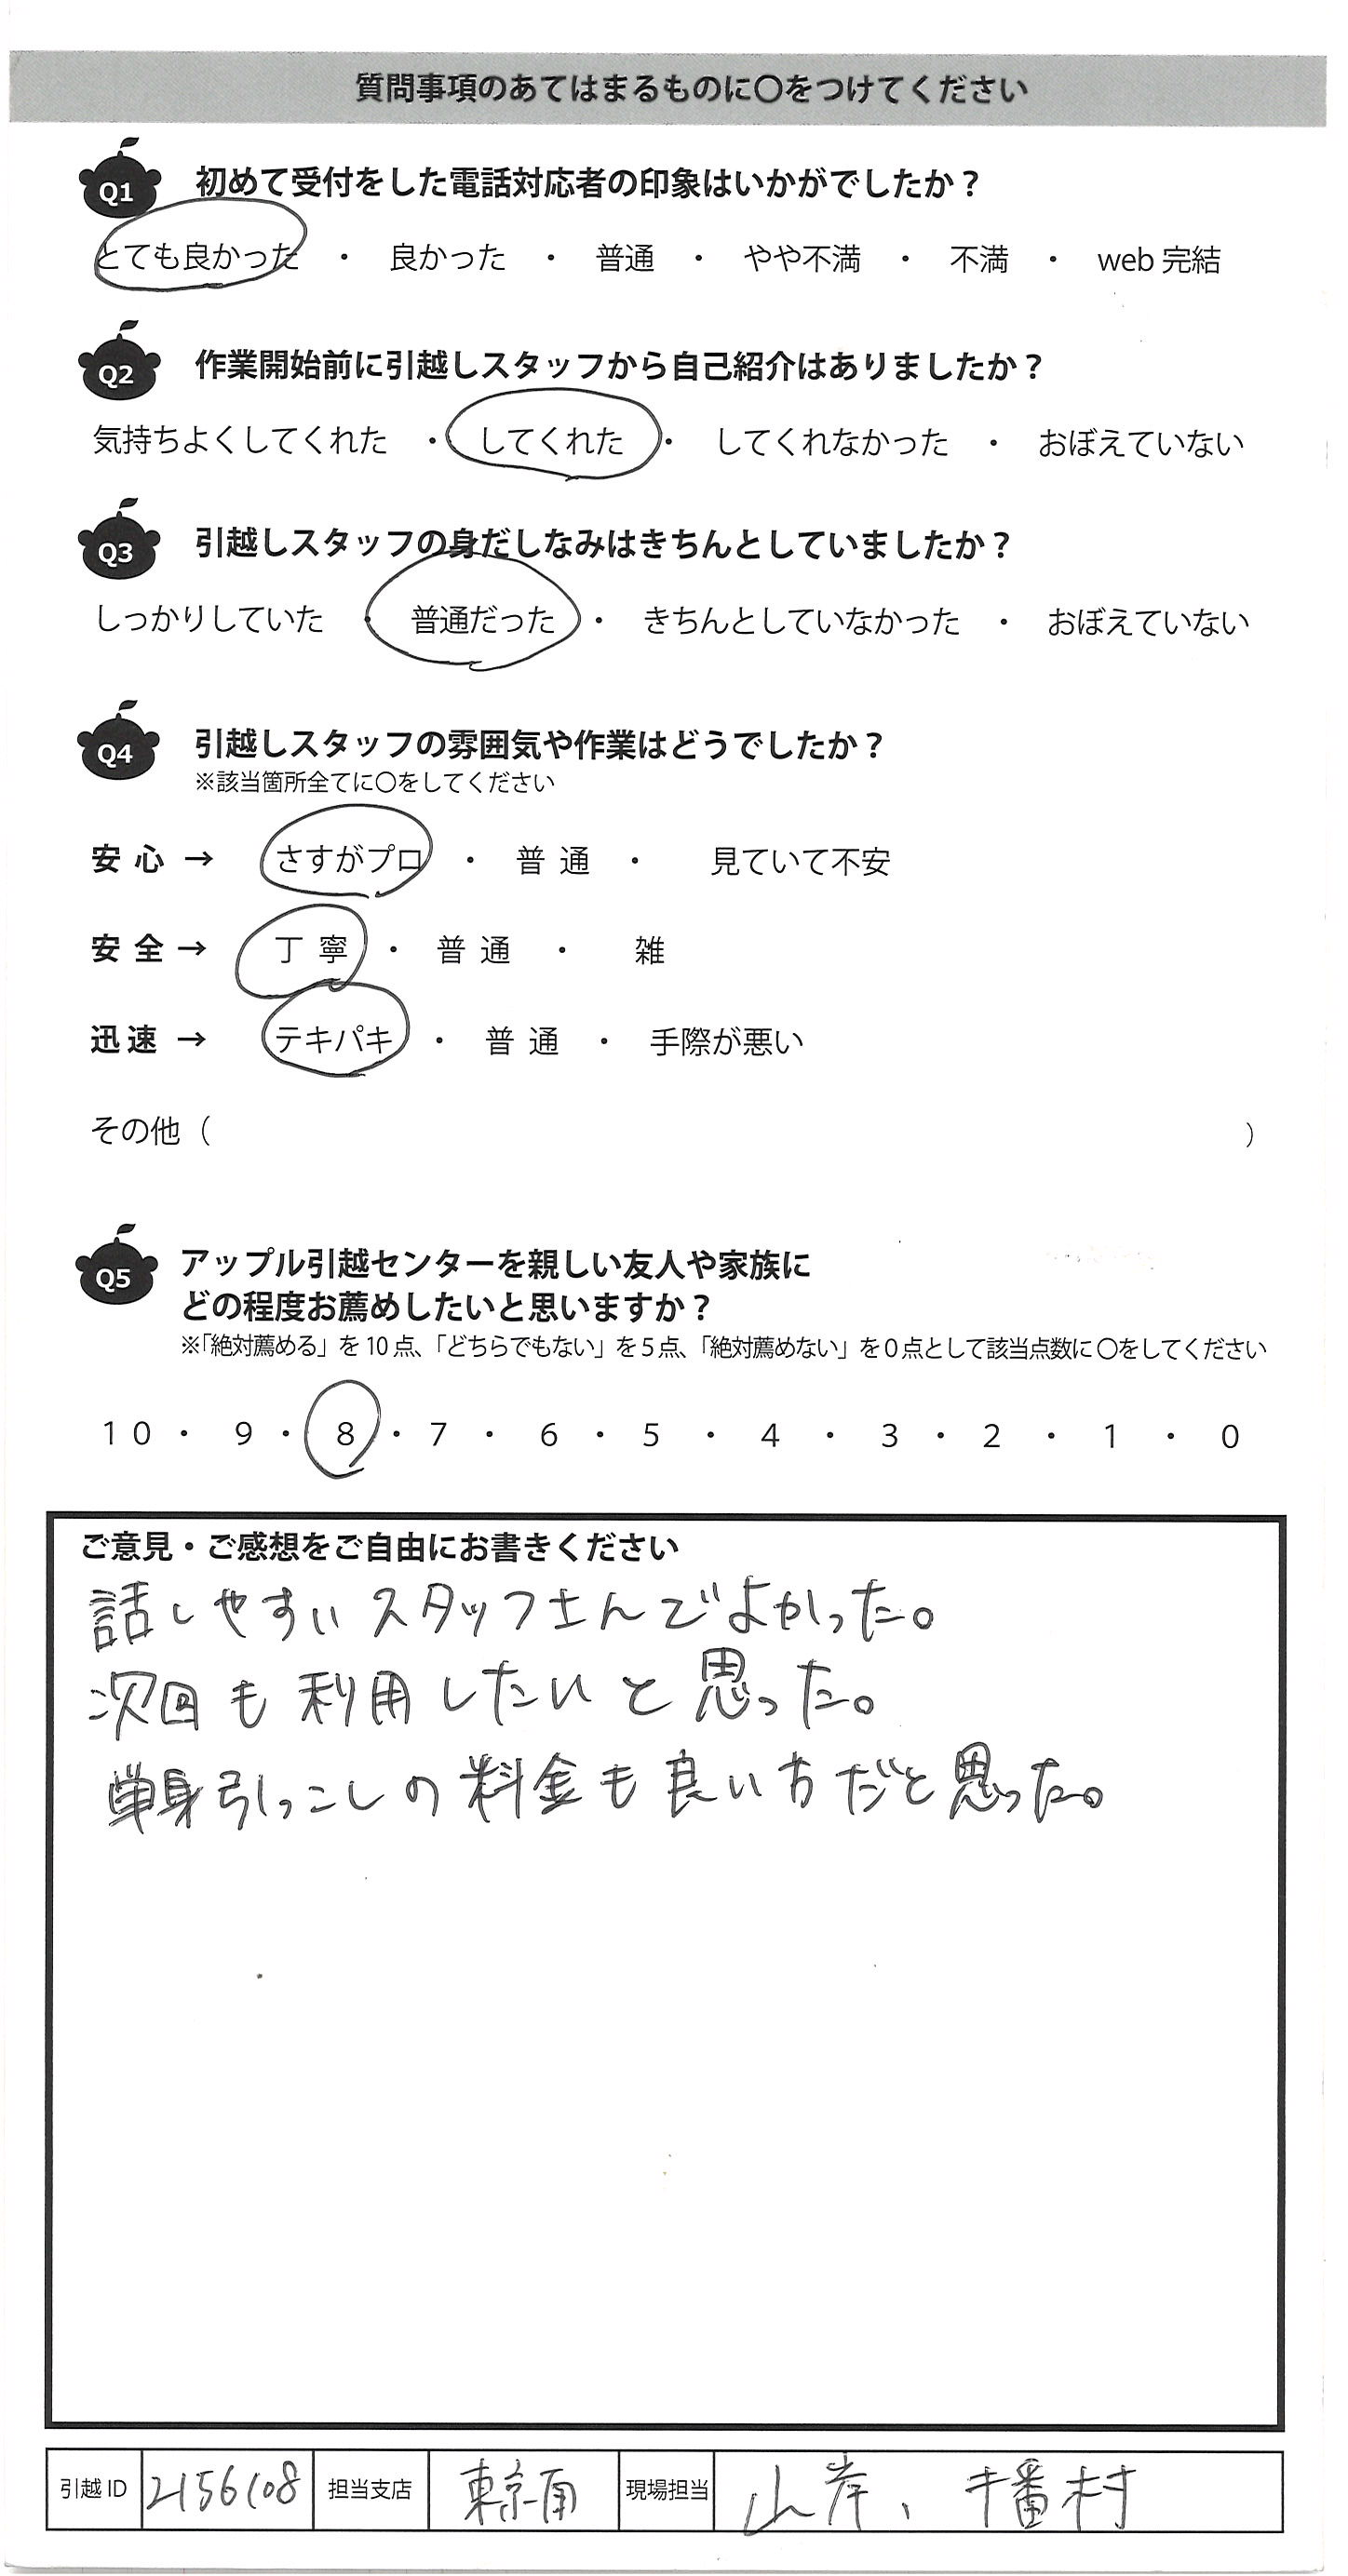 質問事項のあてはまるものに〇をつけてください
Q1 初めて受付をした電話対応者の印象はいかがでしたか？
とても良かった ・ 良かった ・ 普通 ・ やや不満 ・ 不満 ・ web 完結
Q2 作業開始前に引越しスタッフから自己紹介はありましたか？
気持ちよくしてくれた ・ してくれた ・ してくれなかった ・ おぼえていない
Q3 引越しスタッフの身だしなみはきちんとしていましたか？
しっかりしていた ・ 普通だった ・ きちんとしていなかった ・ おぼえていない
Q4 引越しスタッフの雰囲気や作業はどうでしたか？
※該当箇所全てに〇をしてください
安心 → さすがプロ ・ 普通 ・ 見ていて不安
安全 → 丁寧 ・ 普通 ・ 雑
迅速 → テキパキ ・ 普通 ・ 手際が悪い
その他（ ）
Q5 アップル引越センターを親しい友人や家族に
どの程度お薦めしたいと思いますか？
※「絶対薦める」を10点、「どちらでもない」を5点、「絶対薦めない」を0点として該当点数に〇をしてください
10 ・ 9 ・ 8 ・ 7 ・ 6 ・ 5 ・ 4 ・ 3 ・ 2 ・ 1 ・ 0
ご意見・ご感想をご自由にお書きください
話しやすいスタッフさんでよかった。
次回も利用したいと思った。
単身引っこしの料金も良い方だと思った。
引越ID 2156108 担当支店 東京南 現場担当 山岸、幡村